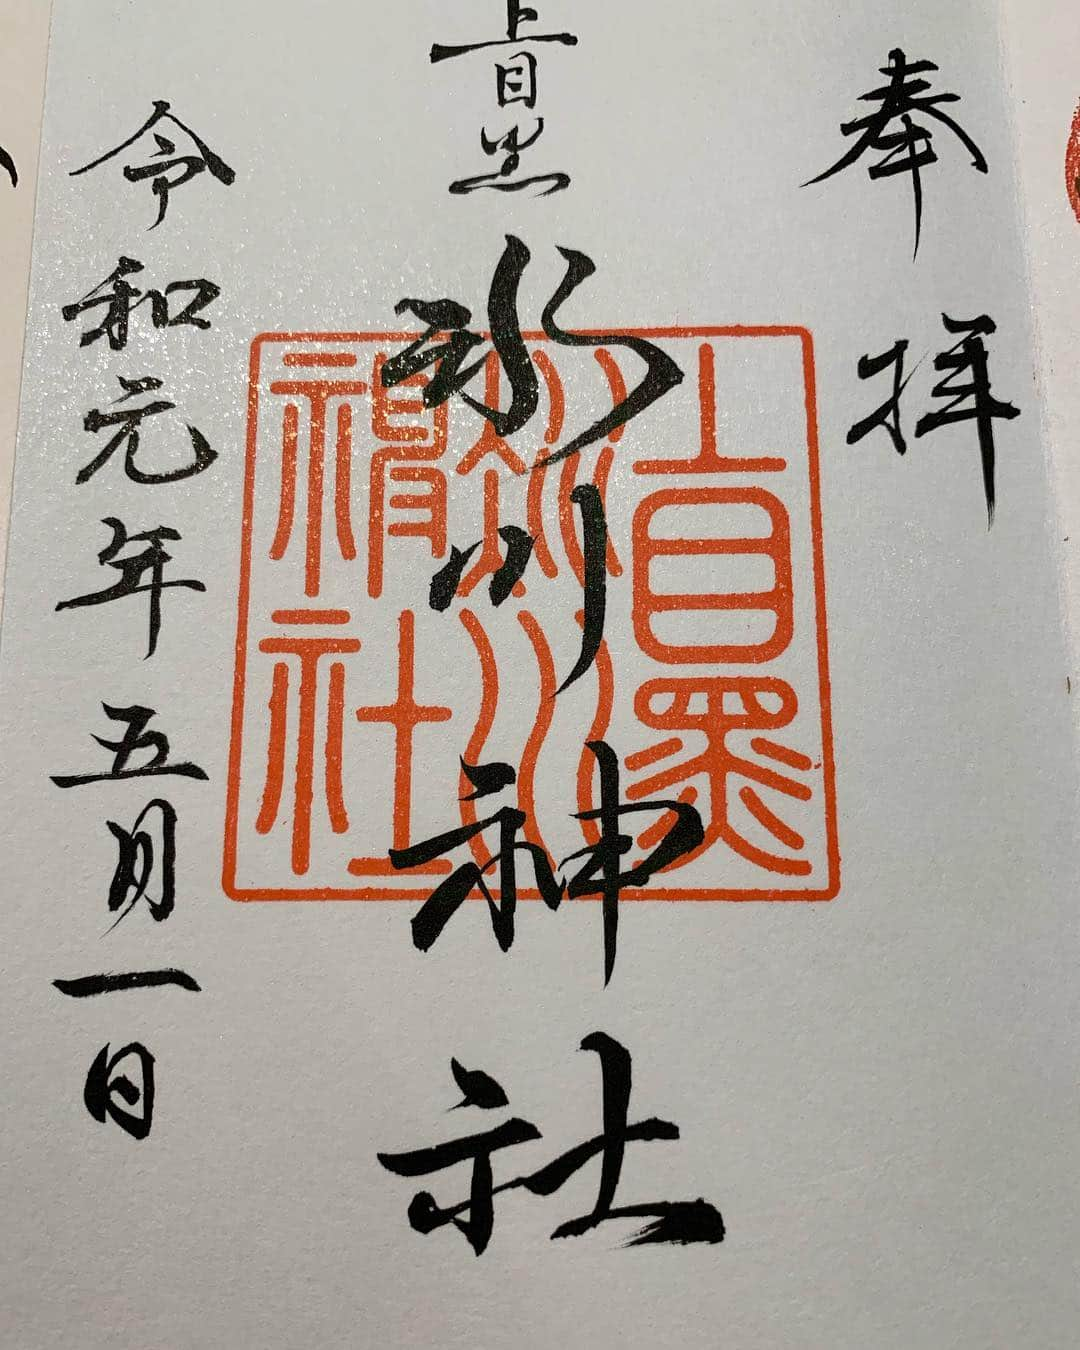 奉拝
上目黒
氷川神社
令和元年五月一日
上目黒
氷川
神社